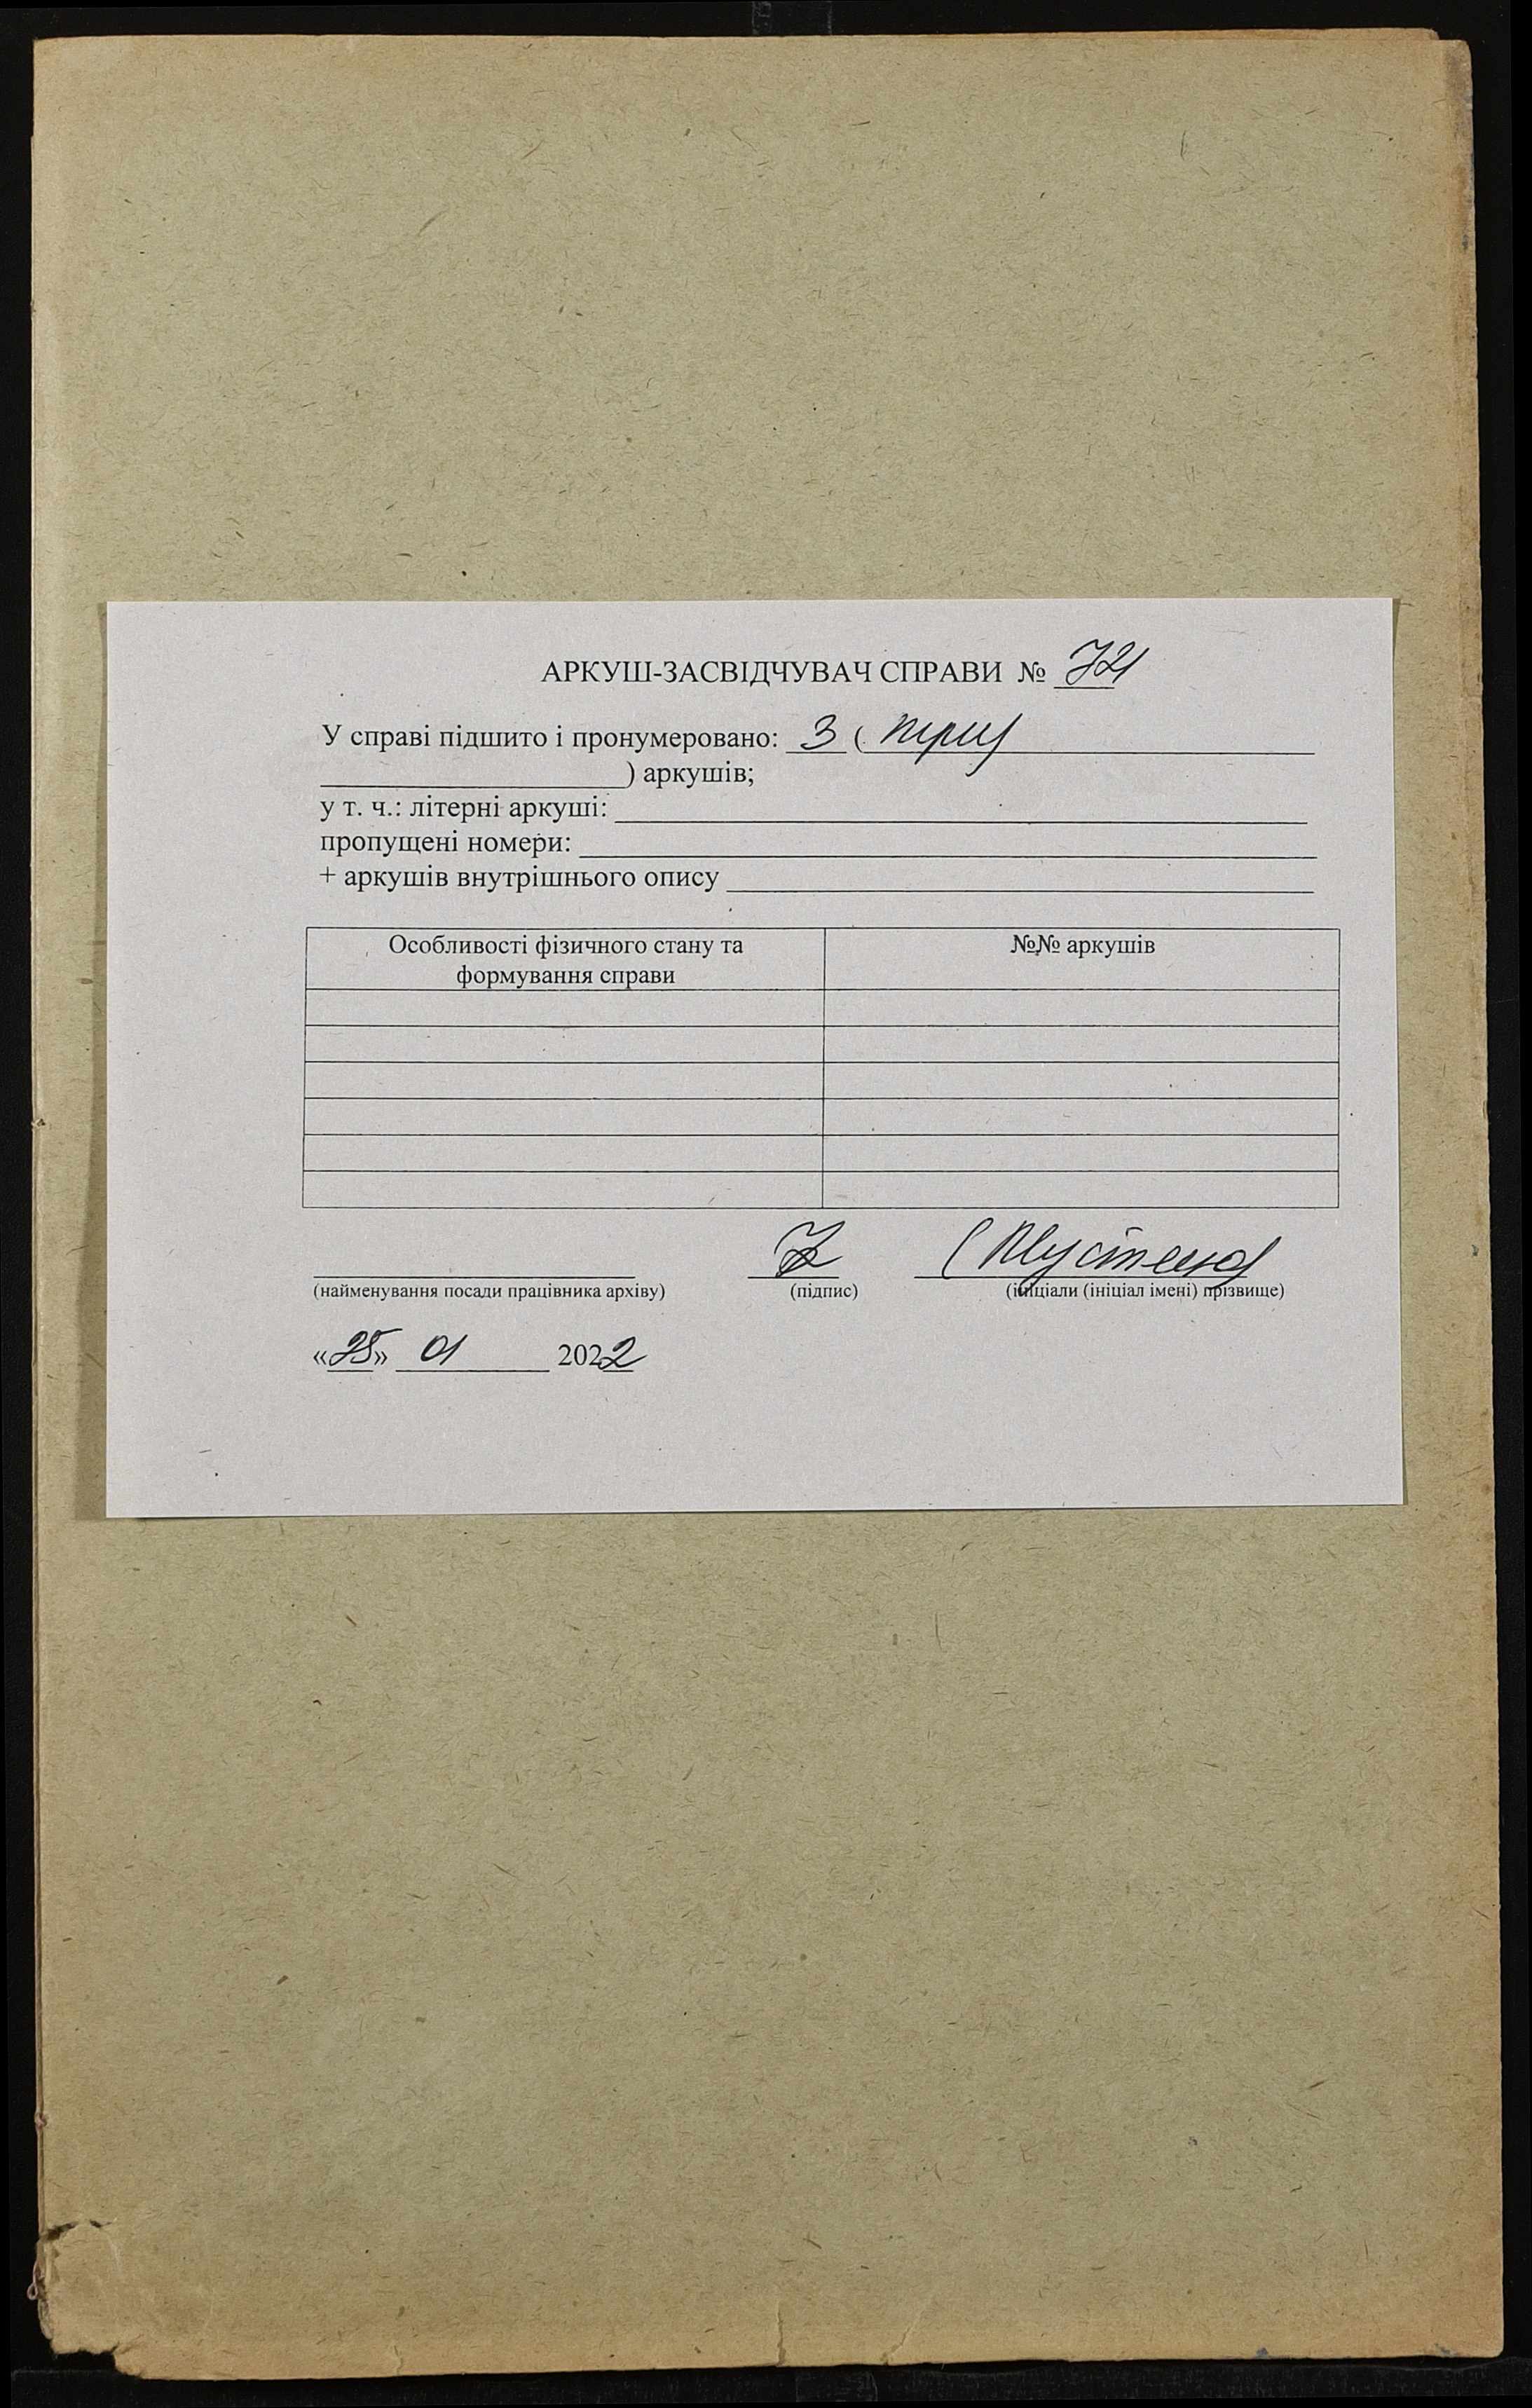 АРКУШ-ЗАСВІДЧУВАЧ СПРАВИ № 721
У справі підшито і пронумеровано: 3 ( три)
) аркушів;
у т. ч.: літерні аркуші:
пропущені номери:
+ аркушів внутрішнього опису
Особливості фізичного стану та
формування справи
№№ аркушів
(найменування посади працівника архіву)
(підпис)
(ініціали (ініціал імені) прізвище)
«25» 01 2022